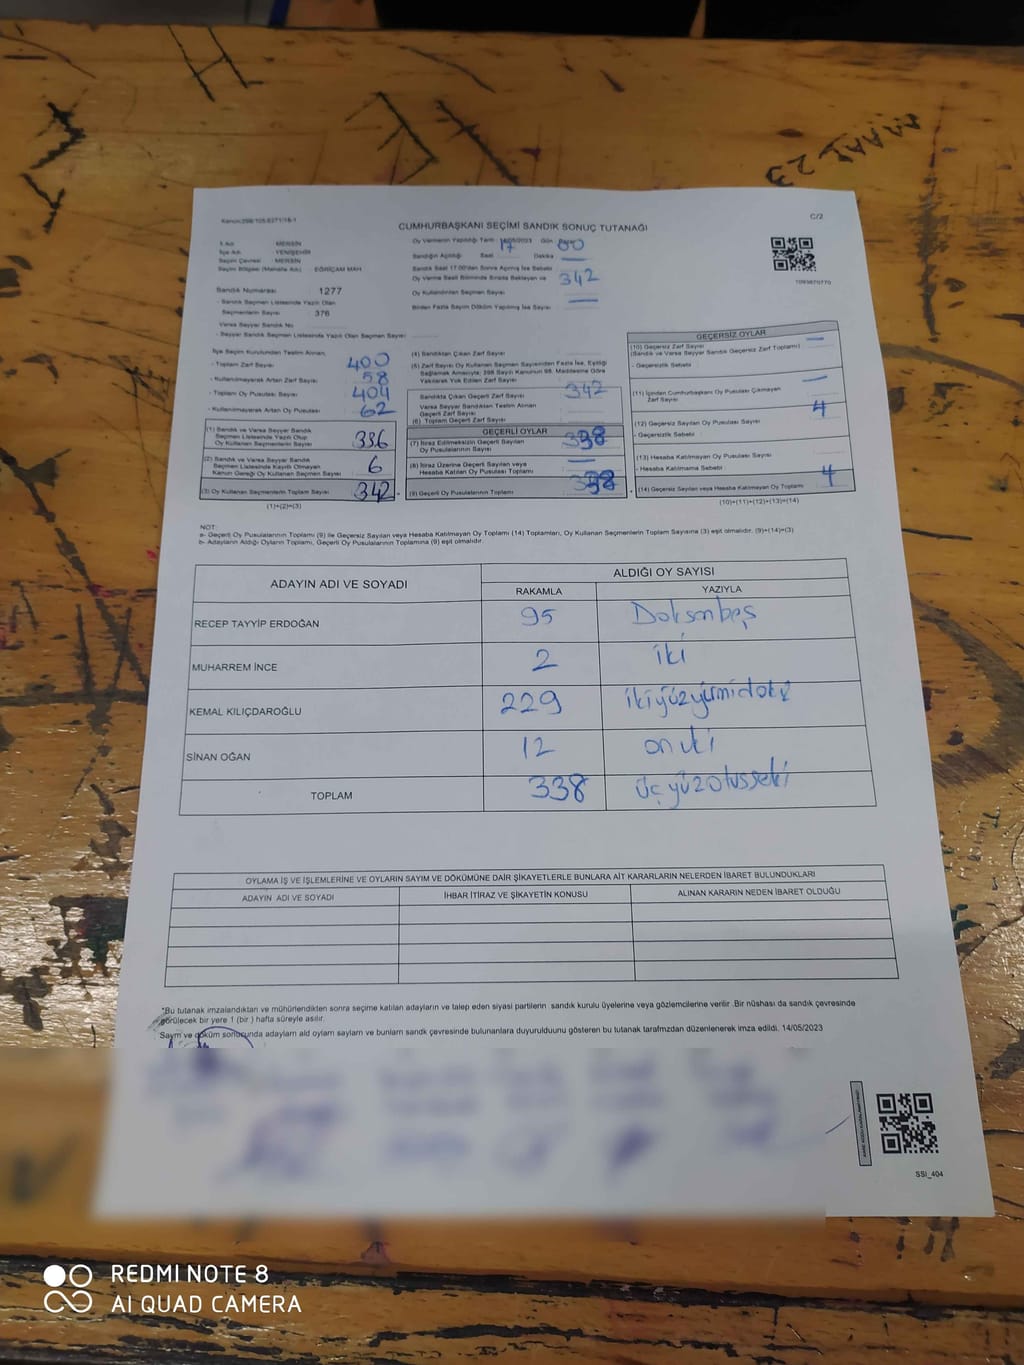 Kanun:298/105,6271/16-1
C/2
CUMHURBAŞKANI SEÇİMİ SANDIK SONUÇ TUTANAĞI
İl Adı : MERSİN
İlçe Adı : YENİŞEHİR
Seçim Çevresi : MERSİN
Seçim Bölgesi (Mahalle Adı) : EĞRİÇAM MAH.
Sandık Numarası : 1277
- Sandık Seçmen Listesinde Yazılı Olan
Seçmenlerin Sayısı : 376
Varsa Seyyar Sandık No
- Seyyar Sandık Seçmen Listesinde Yazılı Olan Seçmen Sayısı :
Oy Vermenin Yapıldığı Tarih : 14/05/2023 Gün : Pazar
Sandığın Açıldığı Saat : 17 Dakika : 00
Sandık Saat 17.00'den Sonra Açılmış İse Sebebi
Oy Verme Saati Bitiminde Sırada Bekleyen ve
Oy Kullandırılan Seçmen Sayısı : 342
Birden Fazla Sayım Döküm Yapılmış İse Sayısı :
1093870770
İlçe Seçim Kurulundan Teslim Alınan;
- Toplam Zarf Sayısı : 400
- Kullanılmayarak Artan Zarf Sayısı : 58
- Toplam Oy Pusulası Sayısı : 404
- Kullanılmayarak Artan Oy Pusulası : 62
(1) Sandık ve Varsa Seyyar Sandık
Seçmen Listesinde Yazılı Olup
Oy Kullanan Seçmenlerin Sayısı 336
(2) Sandık ve Varsa Seyyar Sandık
Seçmen Listesinde Kayıtlı Olmayan
Kanun Gereği Oy Kullanan Seçmen Sayısı 6
(3) Oy Kullanan Seçmenlerin Toplam Sayısı 342
(1)+(2)=(3)
(4) Sandıktan Çıkan Zarf Sayısı :
(5) Zarf Sayısı Oy Kullanan Seçmen Sayısından Fazla İse, Eşitliği
Sağlamak Amacıyla; 298 Sayılı Kanunun 98. Maddesine Göre
Yakılarak Yok Edilen Zarf Sayısı :
Sandıkta Çıkan Geçerli Zarf Sayısı : 342
Varsa Seyyar Sandıktan Teslim Alınan
Geçerli Zarf Sayısı :
(6) Toplam Geçerli Zarf Sayısı :
GEÇERLİ OYLAR
(7) İtiraz Edilmeksizin Geçerli Sayılan
Oy Pusulalarının Sayısı : 338
(8) İtiraz Üzerine Geçerli Sayılan veya
Hesaba Katılan Oy Pusulası Toplamı
(9) Geçerli Oy Pusulalarının Toplamı : 338
GEÇERSİZ OYLAR
(10) Geçersiz Zarf Sayısı
(Sandık ve Varsa Seyyar Sandık Geçersiz Zarf Toplamı)
- Geçersizlik Sebebi :
(11) İçinden Cumhurbaşkanı Oy Pusulası Çıkmayan
Zarf Sayısı
(12) Geçersiz Oy Pusulası Sayısı 4
- Geçersizlik Sebebi :
(13) Hesaba Katılmayan Oy Pusulası Sayısı :
- Hesaba Katılmama Sebebi :
(14) Geçersiz Sayılan veya Hesaba Katılmayan Oy Toplamı 4
(10)+(11)+(12)+(13)=(14)
NOT:
a- Geçerli Oy Pusulalarının Toplamı (9) ile Geçersiz Sayılan veya Hesaba Katılmayan Oy Toplamı (14) Toplamları, Oy Kullanan Seçmenlerin Toplam Sayısına (3) eşit olmalıdır. (9)+(14)=(3)
b- Adayların Aldığı Oyların Toplamı, Geçerli Oy Pusulalarının Toplamına (9) eşit olmalıdır.
ADAYIN ADI VE SOYADI
ALDIĞI OY SAYISI
RAKAMLA YAZIYLA
RECEP TAYYİP ERDOĞAN 95 Doksanbeş
MUHARREM İNCE 2 iki
KEMAL KILIÇDAROĞLU 229 ikiyüzyirmidokz
SİNAN OĞAN 12 oniki
TOPLAM 338 üçyüzotusseki
OYLAMA İŞ VE İŞLEMLERİNE VE OYLARIN SAYIM VE DÖKÜMÜNE DAİR ŞİKAYETLERLE BUNLARA AİT KARARLARIN NELERDEN İBARET BULUNDUKLARI
ADAYIN ADI VE SOYADI İHBAR İTİRAZ VE ŞİKAYETİN KONUSU ALINAN KARARIN NEDEN İBARET OLDUĞU
*Bu tutanak imzalandıktan ve mühürlendikten sonra seçime katılan adayların ve talep eden siyasi partilerin sandık kurulu üyelerine veya gözlemcilerine verilir .Bir nüshası da sandık çevresinde
görülecek bir yere 1 (bir ) hafta süreyle asılır.
Sayım ve döküm sonucunda adayların aldı oyların sayların ve bunların sandk çevresinde bulunanlara duyurulduunu gösteren bu tutanak tarafmzdan düzenlenerek imza edildi. 14/05/2023
SSI_404
REDMI NOTE 8
AI QUAD CAMERA